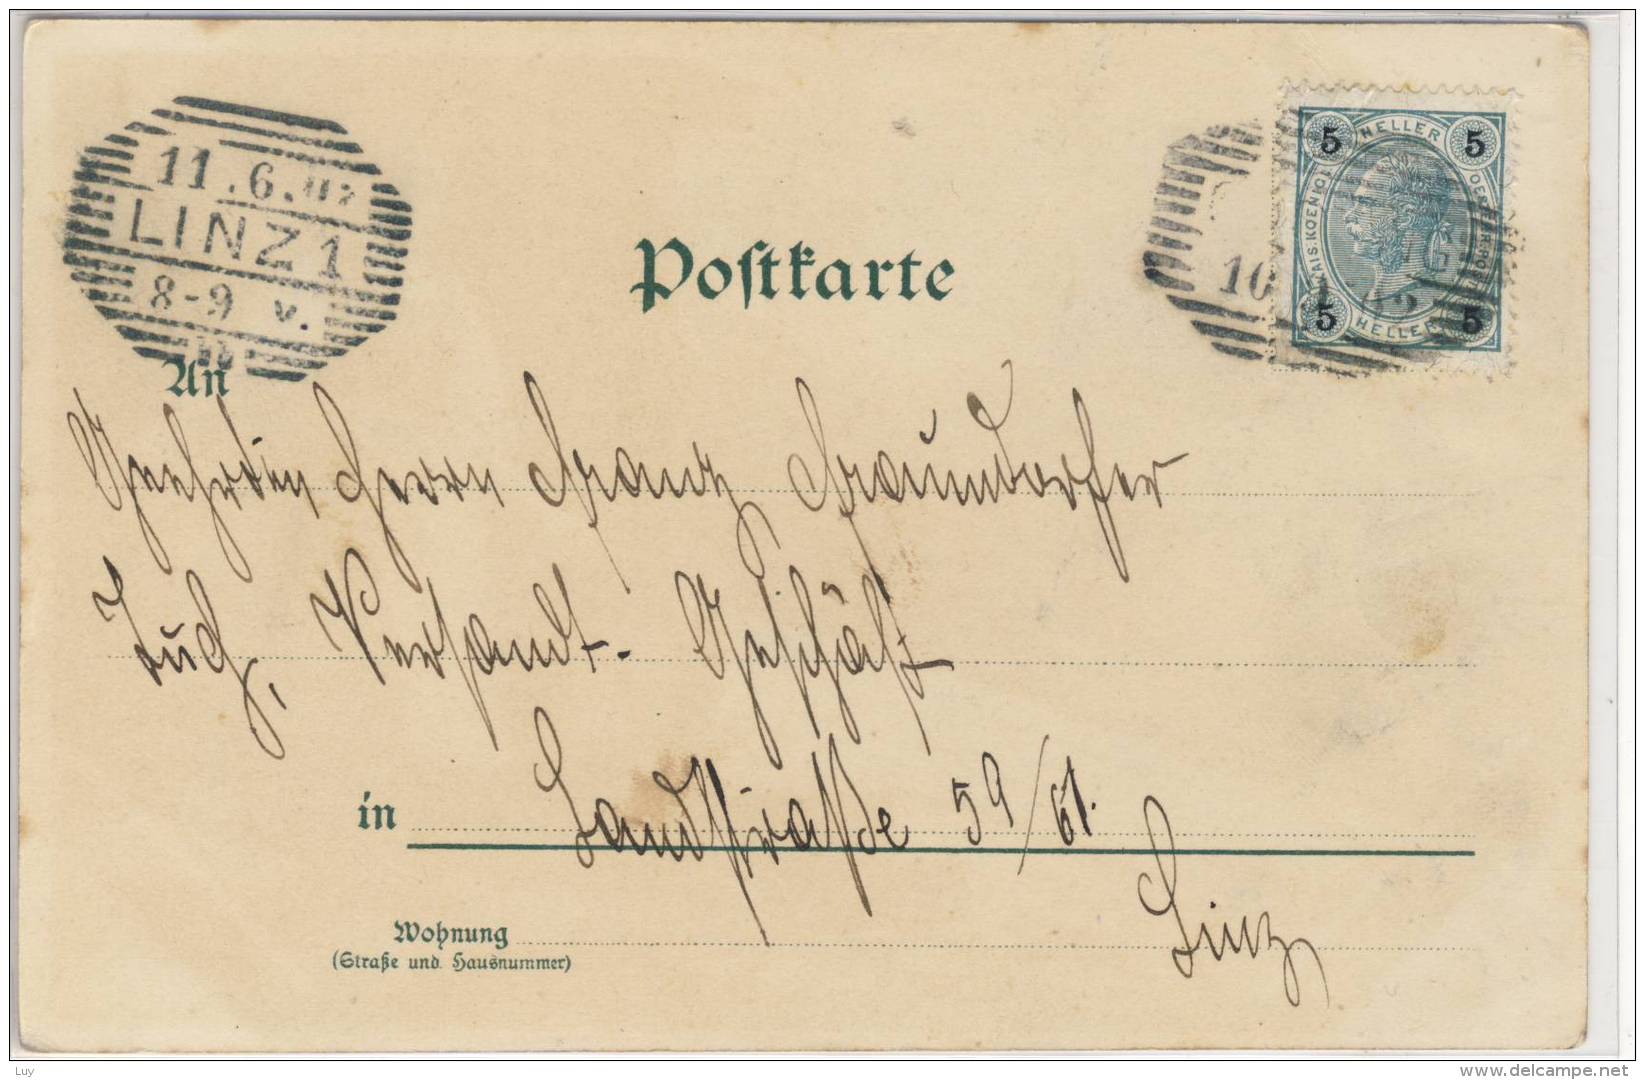 11.6.02
LINZ 1
8-9 v.
5 HELLER 5
5 HELLER 5
10
Postkarte
An
Geehrten Herrn Franz Fraundorfer
Tuch, Versandt-Geschäft
in Landstraße 59/61.
Linz
Wohnung
(Straße und Hausnummer)
Luy
www.delcampe.net